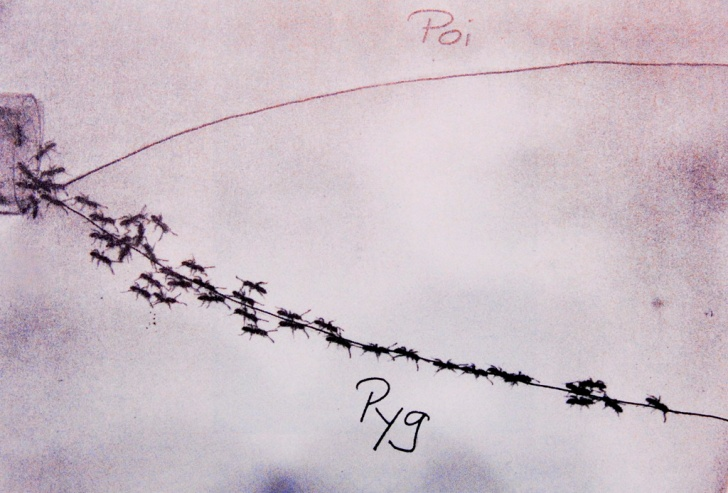 Poi
Pyg